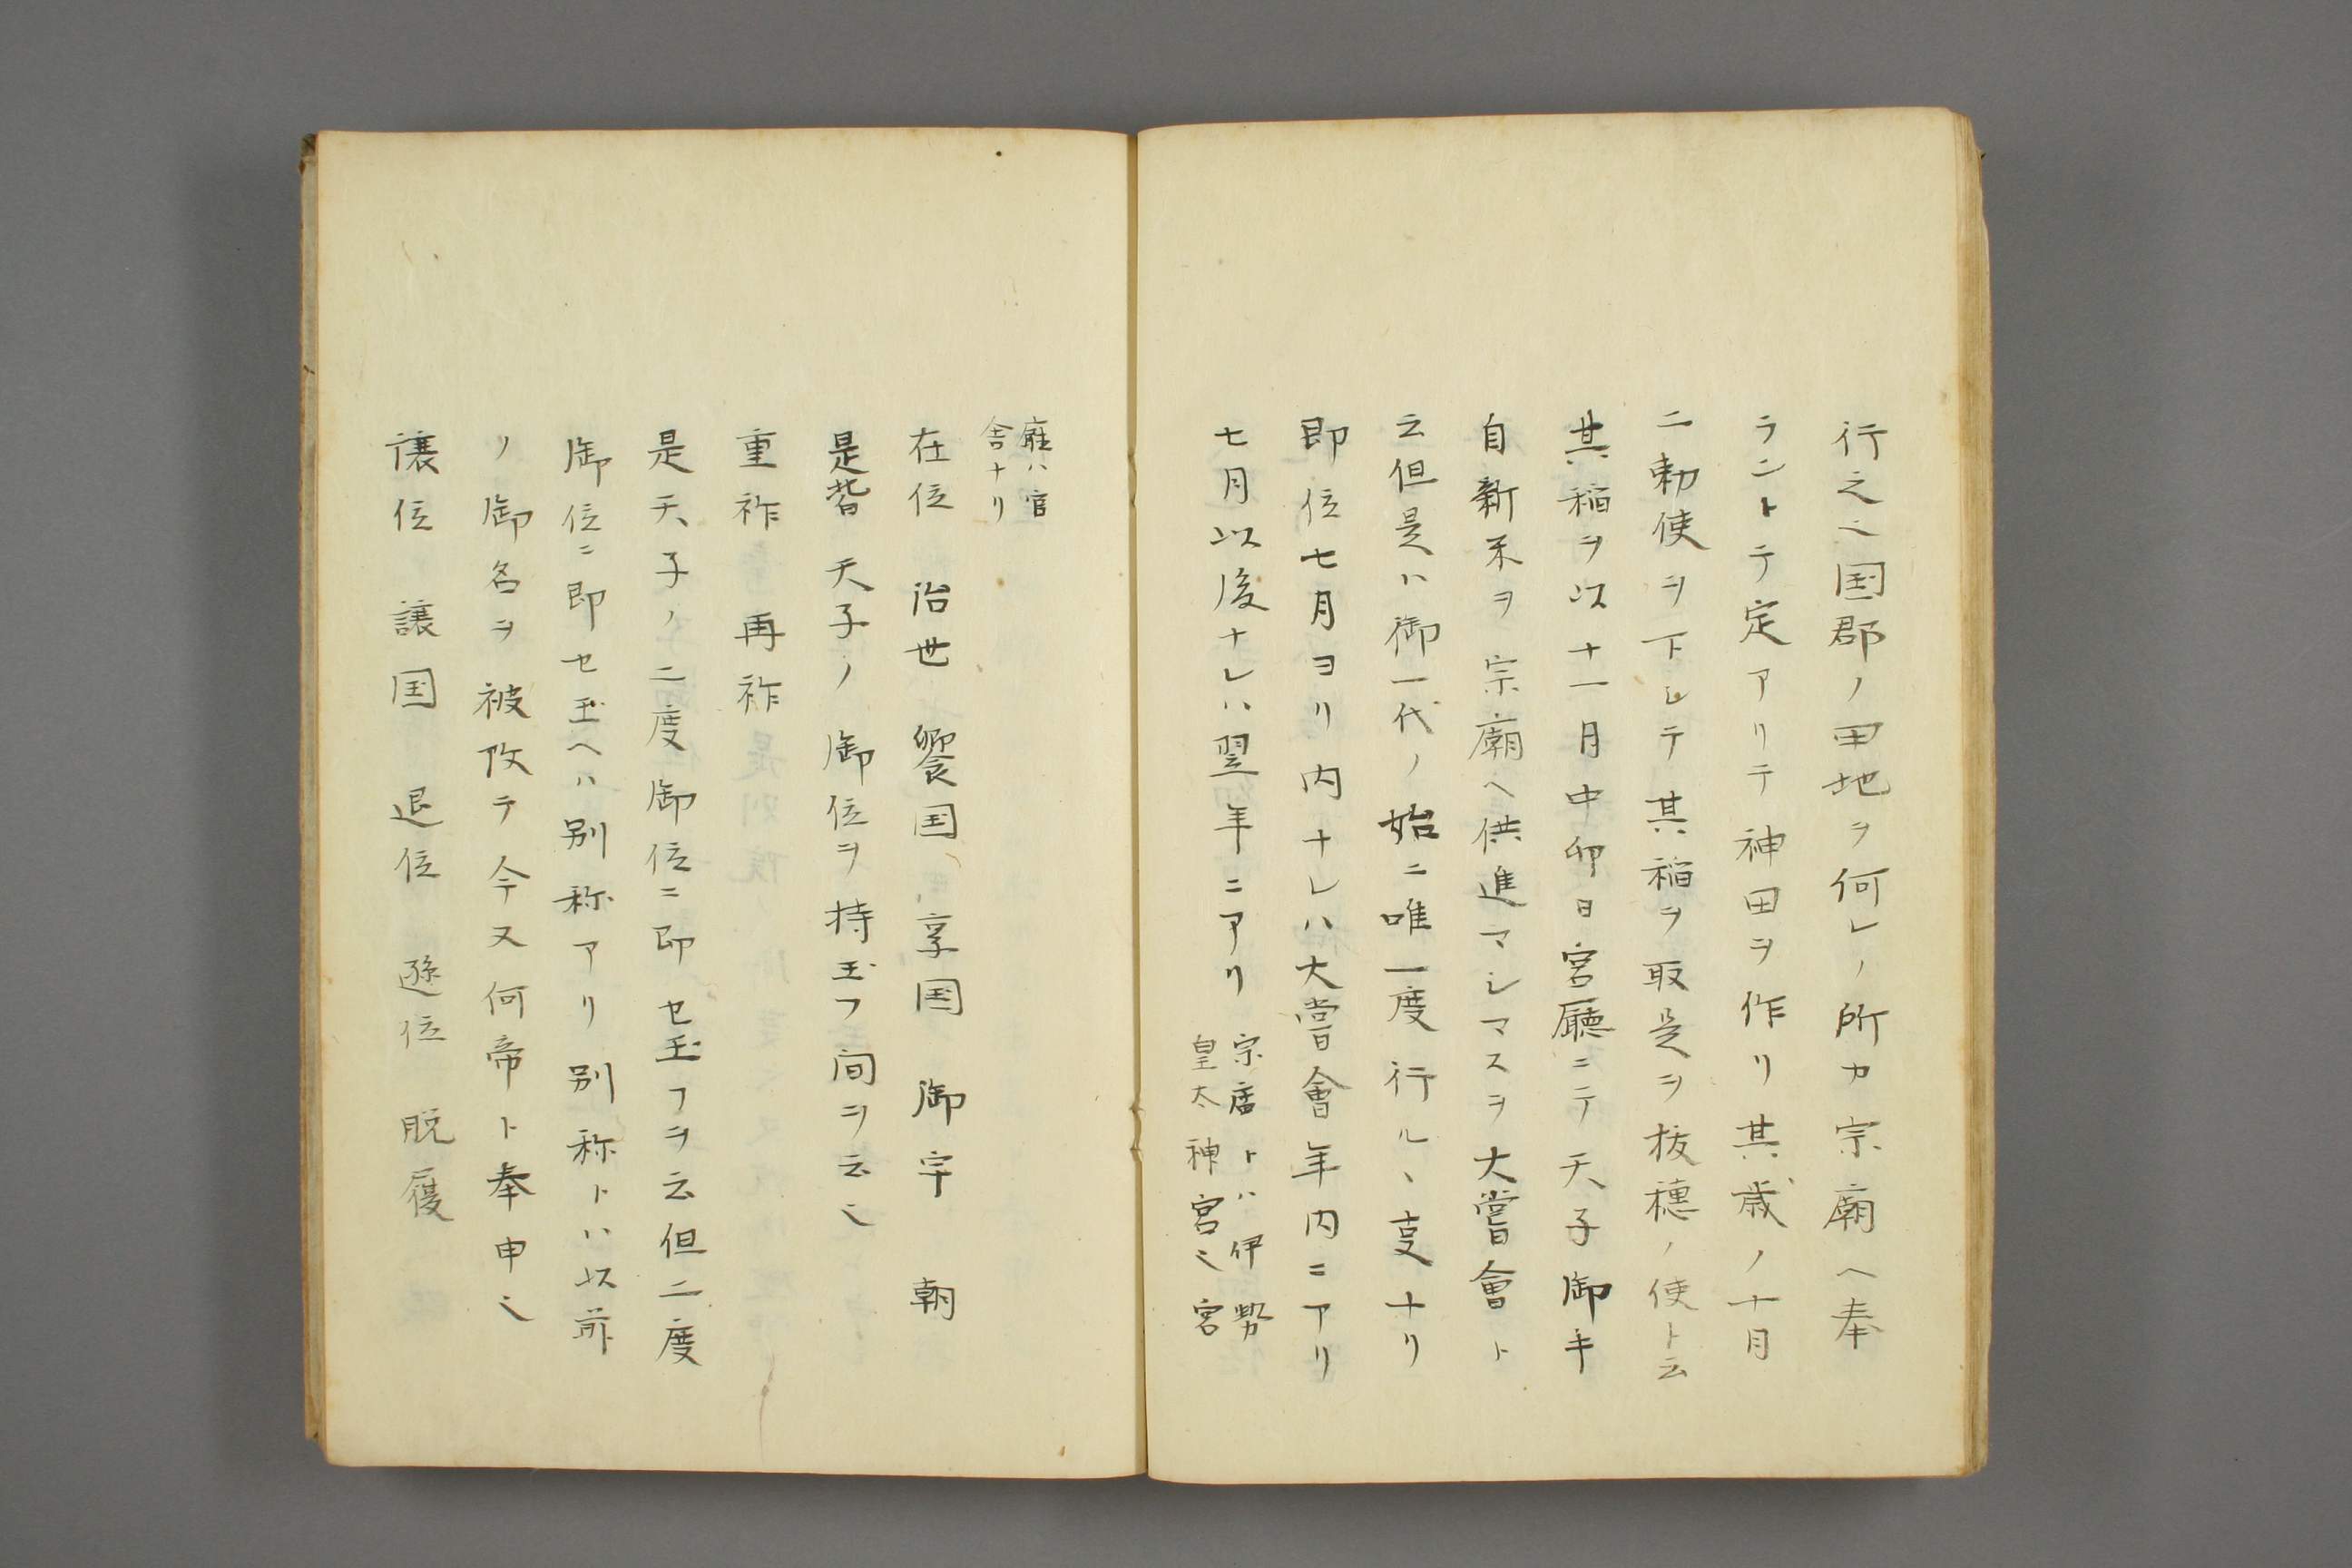 行之〻国郡ノ田地ヲ何レノ所カ宗廟ヘ奉
ラントテ定アリテ神田ヲ作リ其歳ノ十月
ニ勅使ヲ下シテ其稲ヲ取是ヲ抜穂ノ使ト云
其稲ヲ以十一月中卯日宮廳ニテ天子御手
自新米ヲ宗廟ヘ供進マシマスヲ大嘗會ト
云但是ハ御一代ノ始ニ唯一度行ル、叓ナリ
即位七月ヨリ内ナレハ大嘗會年内ニアリ
七月以後ナレハ翌年ニアリ
宗庿トハ伊勢
皇太神宮〻宮
廰ハ官
舎ナリ
在位 治世 饗国 享国 御宇 朝
是皆天子ノ御位ヲ持玉フ間ヲ云〻
重祚 再祚
是天子ノ二度御位ニ即セ玉フヲ云但二度
御位ニ即セ玉ヘハ別称アリ別称トハ以前
ノ御名ヲ被改テ今又何帝ト奉申〻
譲位 譲国 退位 遜位 脱履